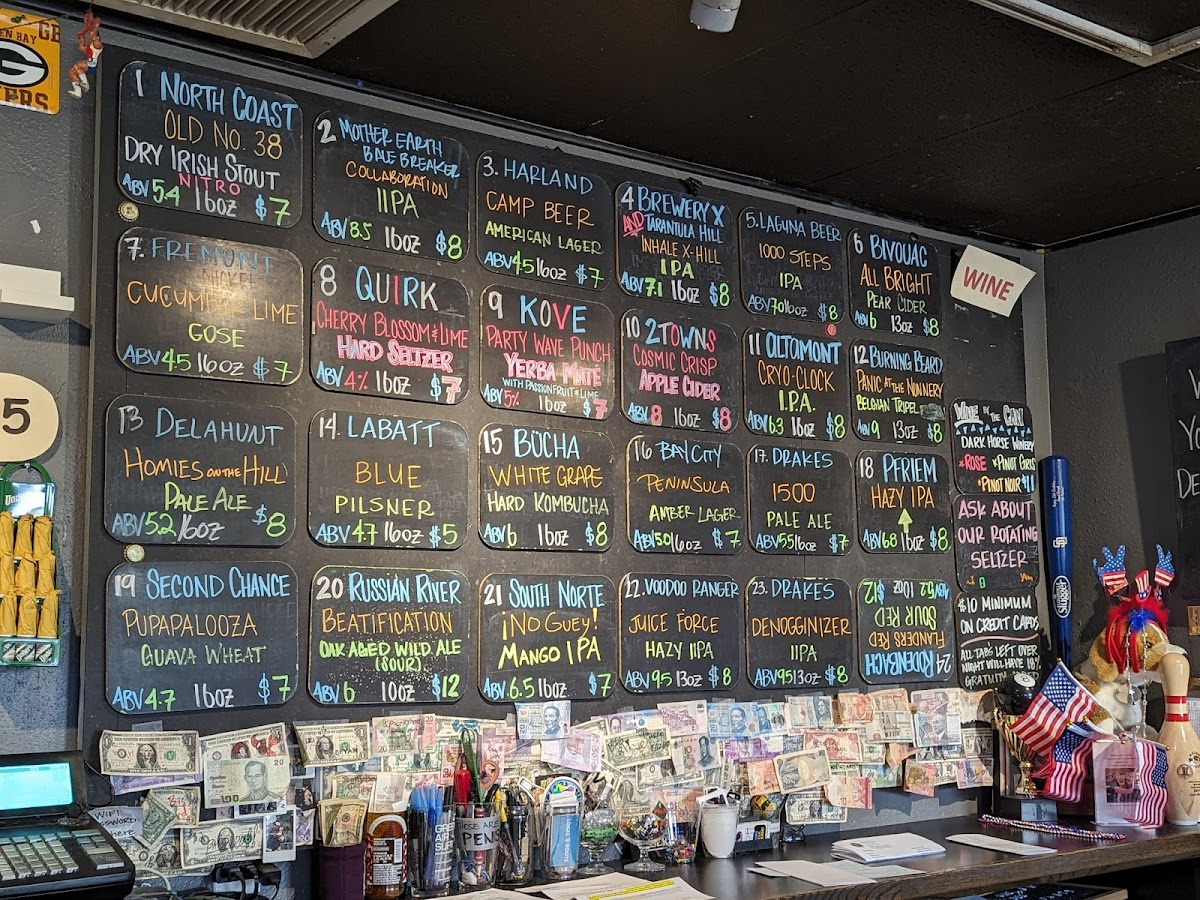 EN BAY
GB
G
ERS
1 NORTH COAST
OLD NO. 38
DRY IRISH STOUT
NITRO
ABV 5.4 16oz $7
2 MOTHER EARTH
BALE BREAKER
COLLABORATION
IIPA
ABV 8.5 16oz $8
3. HARLAND
CAMP BEER
AMERICAN LAGER
ABV 4.5 16oz $7
4 BREWERY X
AND TARANTULA HILL
INHALE X-HILL
IPA
ABV 7.1 16oz $8
5. LAGUNA BEER
1000 STEPS
IPA
ABV 7.0 16oz $8
6 BIVOUAC
ALL BRIGHT
PEAR CIDER
ABV 6 13oz $8
WINE
7. FREMONT
CUCUMBER LIME
GOSE
ABV 4.5 16oz $7
8 QUIRK
CHERRY BLOSSOM & LIME
HARD SELTZER
ABV 4% 16oz $7
9 KOVE
PARTY WAVE PUNCH
YERBA MATE
WITH PASSIONFRUIT & LIME
ABV 5% 16oz $7
10 2TOWNS
COSMIC CRISP
APPLE CIDER
ABV 8 16oz $8
11 ALTAMONT
CRYO-CLOCK
I.P.A.
ABV 6.3 16oz $8
12 BURNING BEARD
PANIC AT THE NUNNERY
BELGIAN TRIPEL
ABV 9 13oz $8
13 DELAHUNT
HOMIES ON THE HILL
PALE ALE
ABV 5.2 16oz $8
14. LABATT
BLUE
PILSNER
ABV 4.7 16oz $5
15 BÜCHA
WHITE GRAPE
HARD KOMBUCHA
ABV 6 16oz $8
16 BAY CITY
PENINSULA
AMBER LAGER
ABV 5.0 16oz $7
17. DRAKES
1500
PALE ALE
ABV 5.5 16oz $7
18 PFRIEM
HAZY IPA
ABV 6.8 16oz $8
WINE BY THE CAN!
DARK HORSE WINERY
*ROSE *PINOT GRIGIO
*PINOT NOIR $11
ASK ABOUT
OUR ROTATING
SELTZER
19 SECOND CHANCE
PUPAPALOOZA
GUAVA WHEAT
ABV 4.7 16oz $7
20 RUSSIAN RIVER
BEATIFICATION
OAK AGED WILD ALE
(SOUR)
ABV 6 10oz $12
21 SOUTH NORTE
¡NO GUEY!
MANGO IPA
ABV 6.5 16oz $7
22. VOODOO RANGER
JUICE FORCE
HAZY IIPA
ABV 9.5 13oz $8
23. DRAKES
DENOGGINIZER
IIPA
ABV 9.5 13oz $8
24 RODENBACH
FLANDERS RED
SOUR RED
ABV 5.2 10oz $12
$10 MINIMUM
ON CREDIT CARDS
ALL TABS LEFT OVER
NIGHT WILL HAVE 18%
GRATUITY
5
WIFI
PASSWORD
here
THESE ARE
PEN